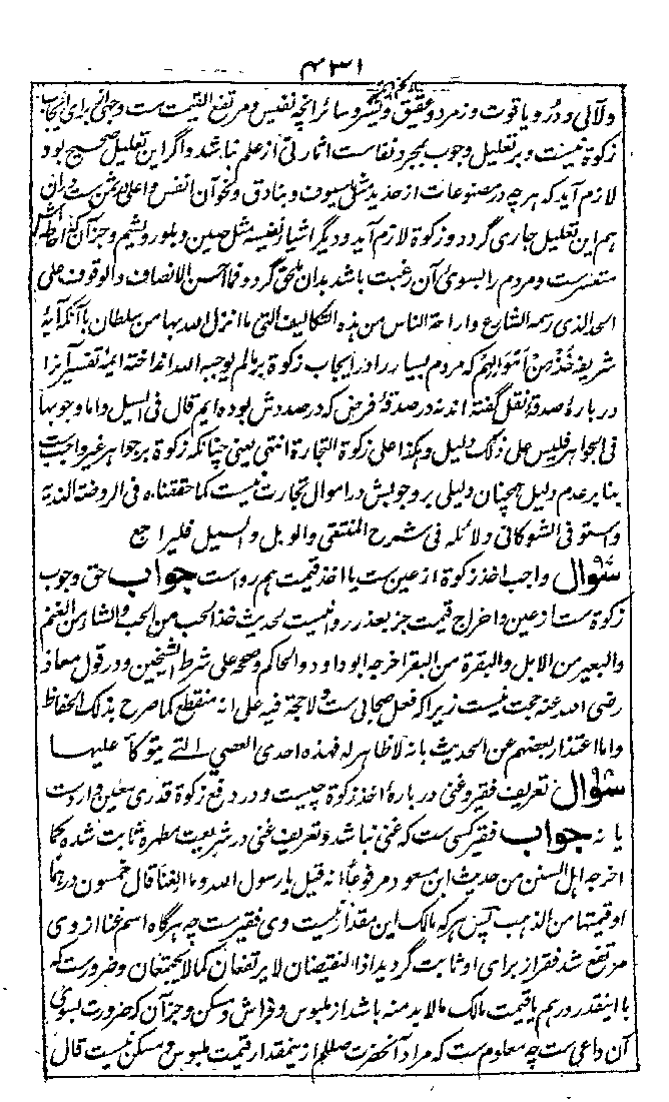 ۴۳۱
ولآلی و درو یاقوت و زمرد و عقیق و یسر و سائر آنچه نفیس و مرتفع القیمت ست وجهی برای ایجاب
زکوة نیست و بر تعلیل وجوب بمجرد نفاست اثارتی از علم نباشد و اگر این تعلیل صحیح بود
لازم آید که هرچه در مصنوعات از حدید مثل سیوف و بنادق و نحو آن انفس و اعلی بثمن ست دران
هم این تعلیل جاری گردد و زکوة لازم آید و دیگر اشیاء نفیسه مثل صین و بلور ویشم و جز آن که احاطه‌اش
متعسرست و مردم را بسوی آن رغبت باشد بدان ملحق گردد و فما احسن الانصاف والوقوف علی
الحد الذی رسمه الشارع واراحة الناس من هذه التکالیف التی ما انزل الله بها من سلطان با آنکه آیهٔ
شریفه خُذْ مِنْ أَمْوَالِهِمْ که مردم بسیار را در ایجاب زکوة بر ما لم یوجبه الله انداخته ایمهٔ تفسیر آنرا
دربارهٔ صدقهٔ نفل گفته اند نه در صدقهٔ فرض که در صددش بوده ایم قال فی السیل واما وجوبها
فی الجواهر فلیس علی ذلک دلیل و هکذا علی زکوة التجارة انتهی یعنی چنانکه زکوة بر جواهر غیر واجبست
بنا بر عدم دلیل همچنان دلیلی بر وجوبش در اموال تجارت نیست کما حققناه فی الروضة الندیة
واستوفی الشوکانی دلائله فی شرح المنتقی والوبل والسیل فلیراجع
سؤال واجب اخذ زکوة از عین ست یا اخذ قیمت هم رواست جواب حق وجوب
زکوة ست از عین و اخراج قیمت جز بعذر روا نیست لحدیث خذ الحب من الحب والشاة من الغنم
والبعیر من الابل والبقرة من البقر اخرجه ابو داود والحاکم وصححه علی شرط الشیخین و در قول معاذ
رضی الله عنه حجت نیست زیرا که فعل صحابی ست ولا حجة فیه علی انه منقطع کما صرح بذلک الحفاظ
واما اعتذار بعضهم عن الحدیث بانه لا ظاهر له فهذه احدی العصی التے یتوکأ علیها
سؤال تعریف فقیر و غنی دربارهٔ اخذ زکوة چیست و در دفع زکوة قدری معین واردست
یا نه جواب فقیر کسی ست که غنی نباشد و تعریف غنی در شریعت مطهره ثابت شده کما
اخرجه اهل السنن من حدیث ابن مسعود مرفوعاً انه قیل یا رسول الله وما الغنا قال خمسون درهما
او قیمتها من الذهب پس هر که مالک این مقدار نیست وی فقیرست چه هرگاه اسم غنا از وی
مرتفع شد فقر از برای او ثابت گردید اذ النقیضان لا یرتفعان کما لا یجتمعان و ضرورست که
با اینقدر درهم یا قیمت مالک ما لا بد منه باشد از ملبوس و فراش و مسکن و جز آن که ضرورت بسوی
آن داعی ست چه معلوم ست که مراد آنحضرت صللم ازینمقدار قیمت ملبوس و مسکن نیست قال